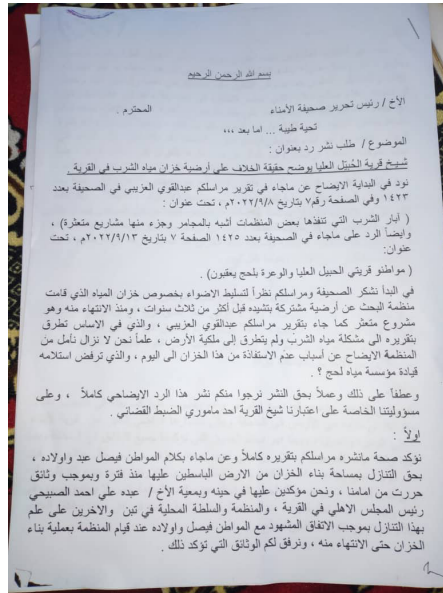 بسم الله الرحمن الرحيم
الأخ / رئيس تحرير صحيفة الأمناء المحترم .
تحية طيبة ... اما بعد ،،،
الموضوع / طلب نشر رد بعنوان :
شيخ قرية الحُبيّل العليا يوضح حقيقة الخلاف على أرضية خزان مياه الشرب في القرية .
نود في البداية الايضاح عن ماجاء في تقرير مراسلكم عبدالقوي العزيبي في الصحيفة بعدد
١٤٢٣ وفي الصفحة رقم٧ بتاريخ ٢٠٢٢/٩/٨م ، تحت عنوان :
( آبار الشرب التي تنفذها بعض المنظمات أشبه بالمجامر وجزء منها مشاريع متعثرة ) ،
وايضاً الرد على ماجاء في الصحيفة بعدد ١٤٢٥ الصفحة ٧ بتاريخ ٢٠٢٢/٩/١٣م ، تحت
عنوان:
( مواطنو قريتي الحبيل العليا والوعرة بلحج يعقبون) .
في البدأ نشكر الصحيفة ومراسلكم نظراً لتسليط الاضواء بخصوص خزان المياه الذي قامت
منظمة البحث عن أرضية مشتركة بتشيده قبل أكثر من ثلاث سنوات ، ومنذ الانتهاء منه وهو
مشروع متعثر كما جاء بتقرير مراسلكم عبدالقوي العزيبي ، والذي في الاساس تطرق
بتقريره الى مشكلة مياه الشرب ولم يتطرق إلى ملكية الأرض ، علماً نحن لا نزال نأمل من
المنظمة الايضاح عن أسباب عدم الاستفادة من هذا الخزان الى اليوم ، والذي ترفض استلامه
قيادة مؤسسة مياه لحج ؟ .
وعطفاً على ذلك وعملاً بحق النشر نرجوا منكم نشر هذا الرد الايضاحي كاملاً ، وعلى
مسؤوليتنا الخاصة على اعتبارنا شيخ القرية احد ماموري الضبط القضائي .
اولاً :
نؤكد صحة مانشره مراسلكم بتقريره كاملاً وعن ماجاء بكلام المواطن فيصل عبد واولاده ،
بحق التنازل بمساحة بناء الخزان من الارض الباسطين عليها منذ فترة وبموجب وثائق
حررت من امامنا ، ونحن مؤكدين عليها في حينه وبمعية الأخ / عبده علي احمد الصبيحي
رئيس المجلس الاهلي في القرية ، والمنظمة والسلطة المحلية في تبن والاخرين على علم
بهذا التنازل بموجب الاتفاق المشهود مع المواطن فيصل واولاده عند قيام المنظمة بعملية بناء
الخزان حتى الانتهاء منه ، ونرفق لكم الوثائق التي تؤكد ذلك .